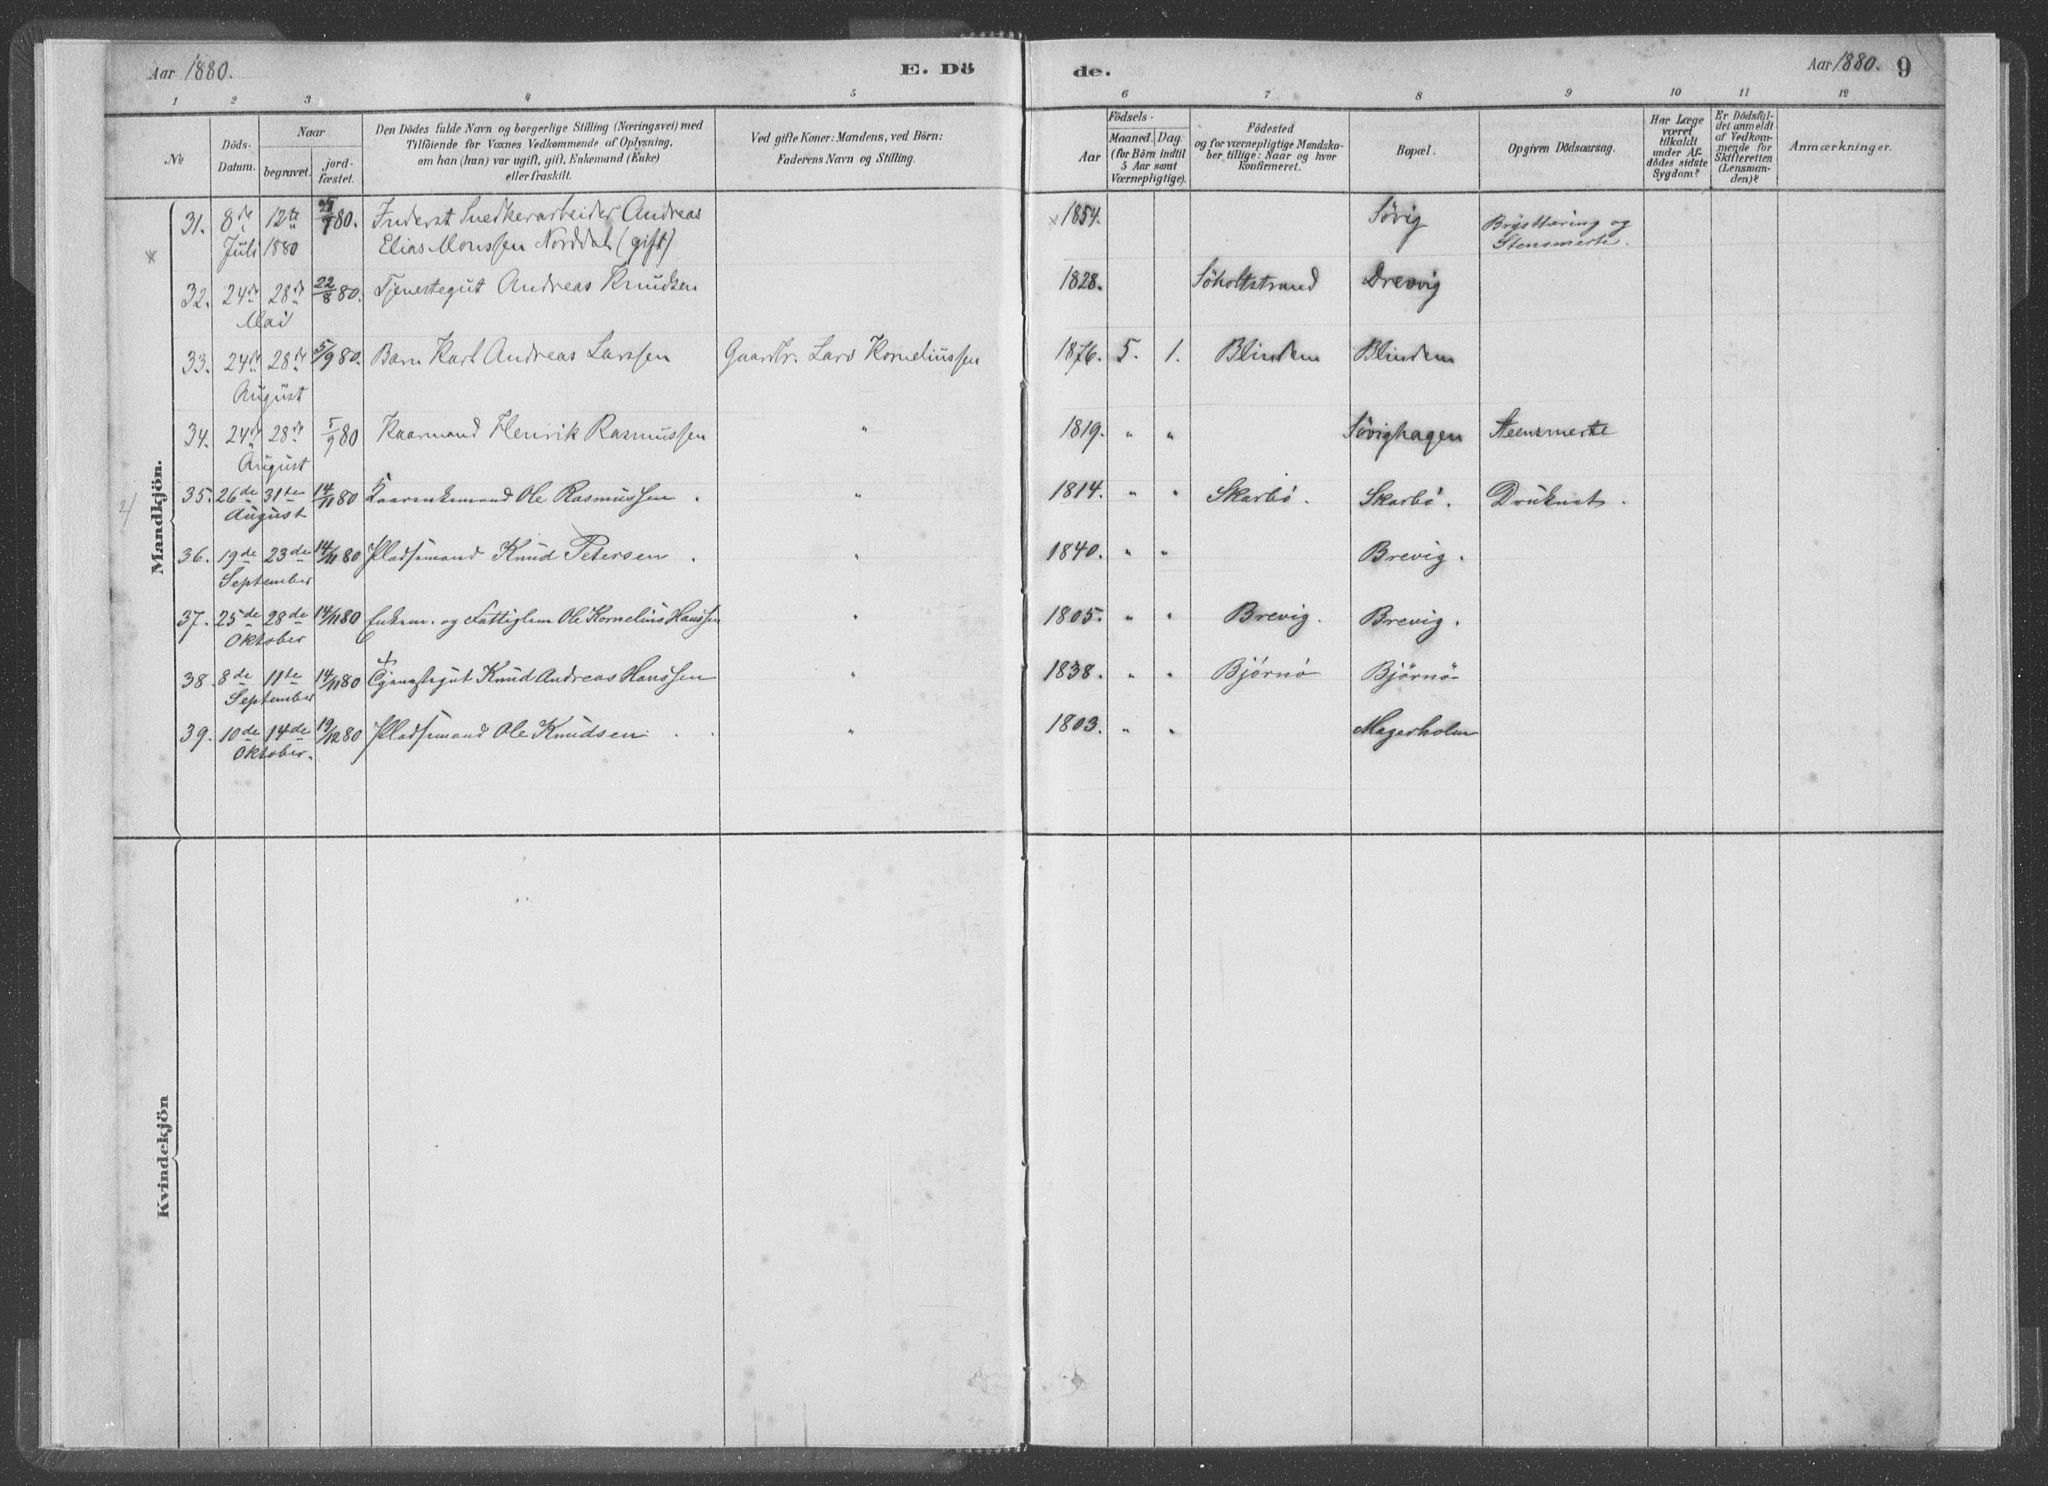 Aar 1880.
E. Dö
de.
Aar 1880. 9
1 2 3 4 5 6 7 8 9 10 11 12
No
Döds-
Datum.
Naar
begravet.
jord-
fæstet.
Den Dödes fulde Navn og borgerlige Stilling (Næringsvei) med
Tilföiende for Voxnes Vedkommende af Oplysning,
om han (hun) var ugift, gift, Enkemand (Enke)
eller fraskilt.
Ved gifte Koner: Mandens, ved Börn:
Faderens Navn og Stilling.
Födsels-
Aar
Maaned. Dag.
(for Börn indtil
5 Aar samt
Værnepligtige).
Födested
og for værnepligtige Mandska-
ber tillige: Naar og hvor
konfirmeret.
Bopæl.
Opgiven Dödsaarsag.
Har Læge
været
tilkaldt
under Af-
dödes sidste
Sygdom?
Er Dödsfal-
det anmeldt
af Vedkom-
mende for
Skifteretten
(Lensman-
den)?
Anmærkninger.
Mandkjön.
31. 8de 12te 80. Inderst Snedkerarbeider Andreas × 1854. Sövig Brysttæring og
× Juli 1880 Elias Monssen Norddal (gift) Stensmerte.
32. 24de 28de 22/8 80. Tjenestegut Andreas Knudsen 1828. Söholtstrand Drevvig
Mai
33. 24de 28de 5/9 80. Barn Karl Andreas Larssen Gaardbr. Lars Korneliussen 1876. 5. 1. Blindem Blindem
August
34. 24de 28de 5/9 80 Kaarmand Henrik Rasmussen " 1819. " " Sövighagen Steensmerte
August
2/ 35. 26de 31te 14/11 80 Kaarenkemand Ole Rasmussen . " 1814. " " Skarbö. Skarbö. Druknet.
August
36. 19de 23de 14/11 80 Pladsemand Knud Petersen . " 1840. " " Brevig.
September
37. 25de 28de 14/11 80 Enkem. og Fattiglem Ole Kornelius Hanssen " 1805. " " Brevig. Brevig.
Oktober
38. 8de 11te 14/11 80 Tjenestegut Knud Andreas Hanssen " 1838. " " Bjørnø Bjørnö
September
39. 10de 14de 19/12 80 Pladsemand Ole Knudsen . . " 1803. " " Magerholm
Oktober.
Kvindekjön